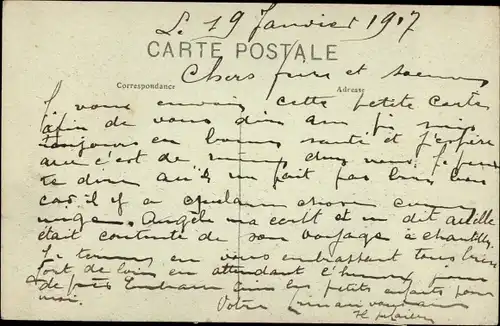 Le 19 Janvier 1917
CARTE POSTALE
Chers frère et soeur
Correspondance
Adresse
Je vous envois cette petite carte
afin de vous dire que je suis
toujours en bonne santé et j'espère
que c'est de même chez vous. Je peux
te dire qu'il ne fait pas bien bon
car il y a quelque chose comme
neige. Angèle m'a écrit et me dit qu'elle
était contente de son voyage à chantilly
Je termine en vous embrassant tous bien
fort de loin en attendant l'heureux jour
de près Embrasse bien les petits enfants pour
moi. Votre